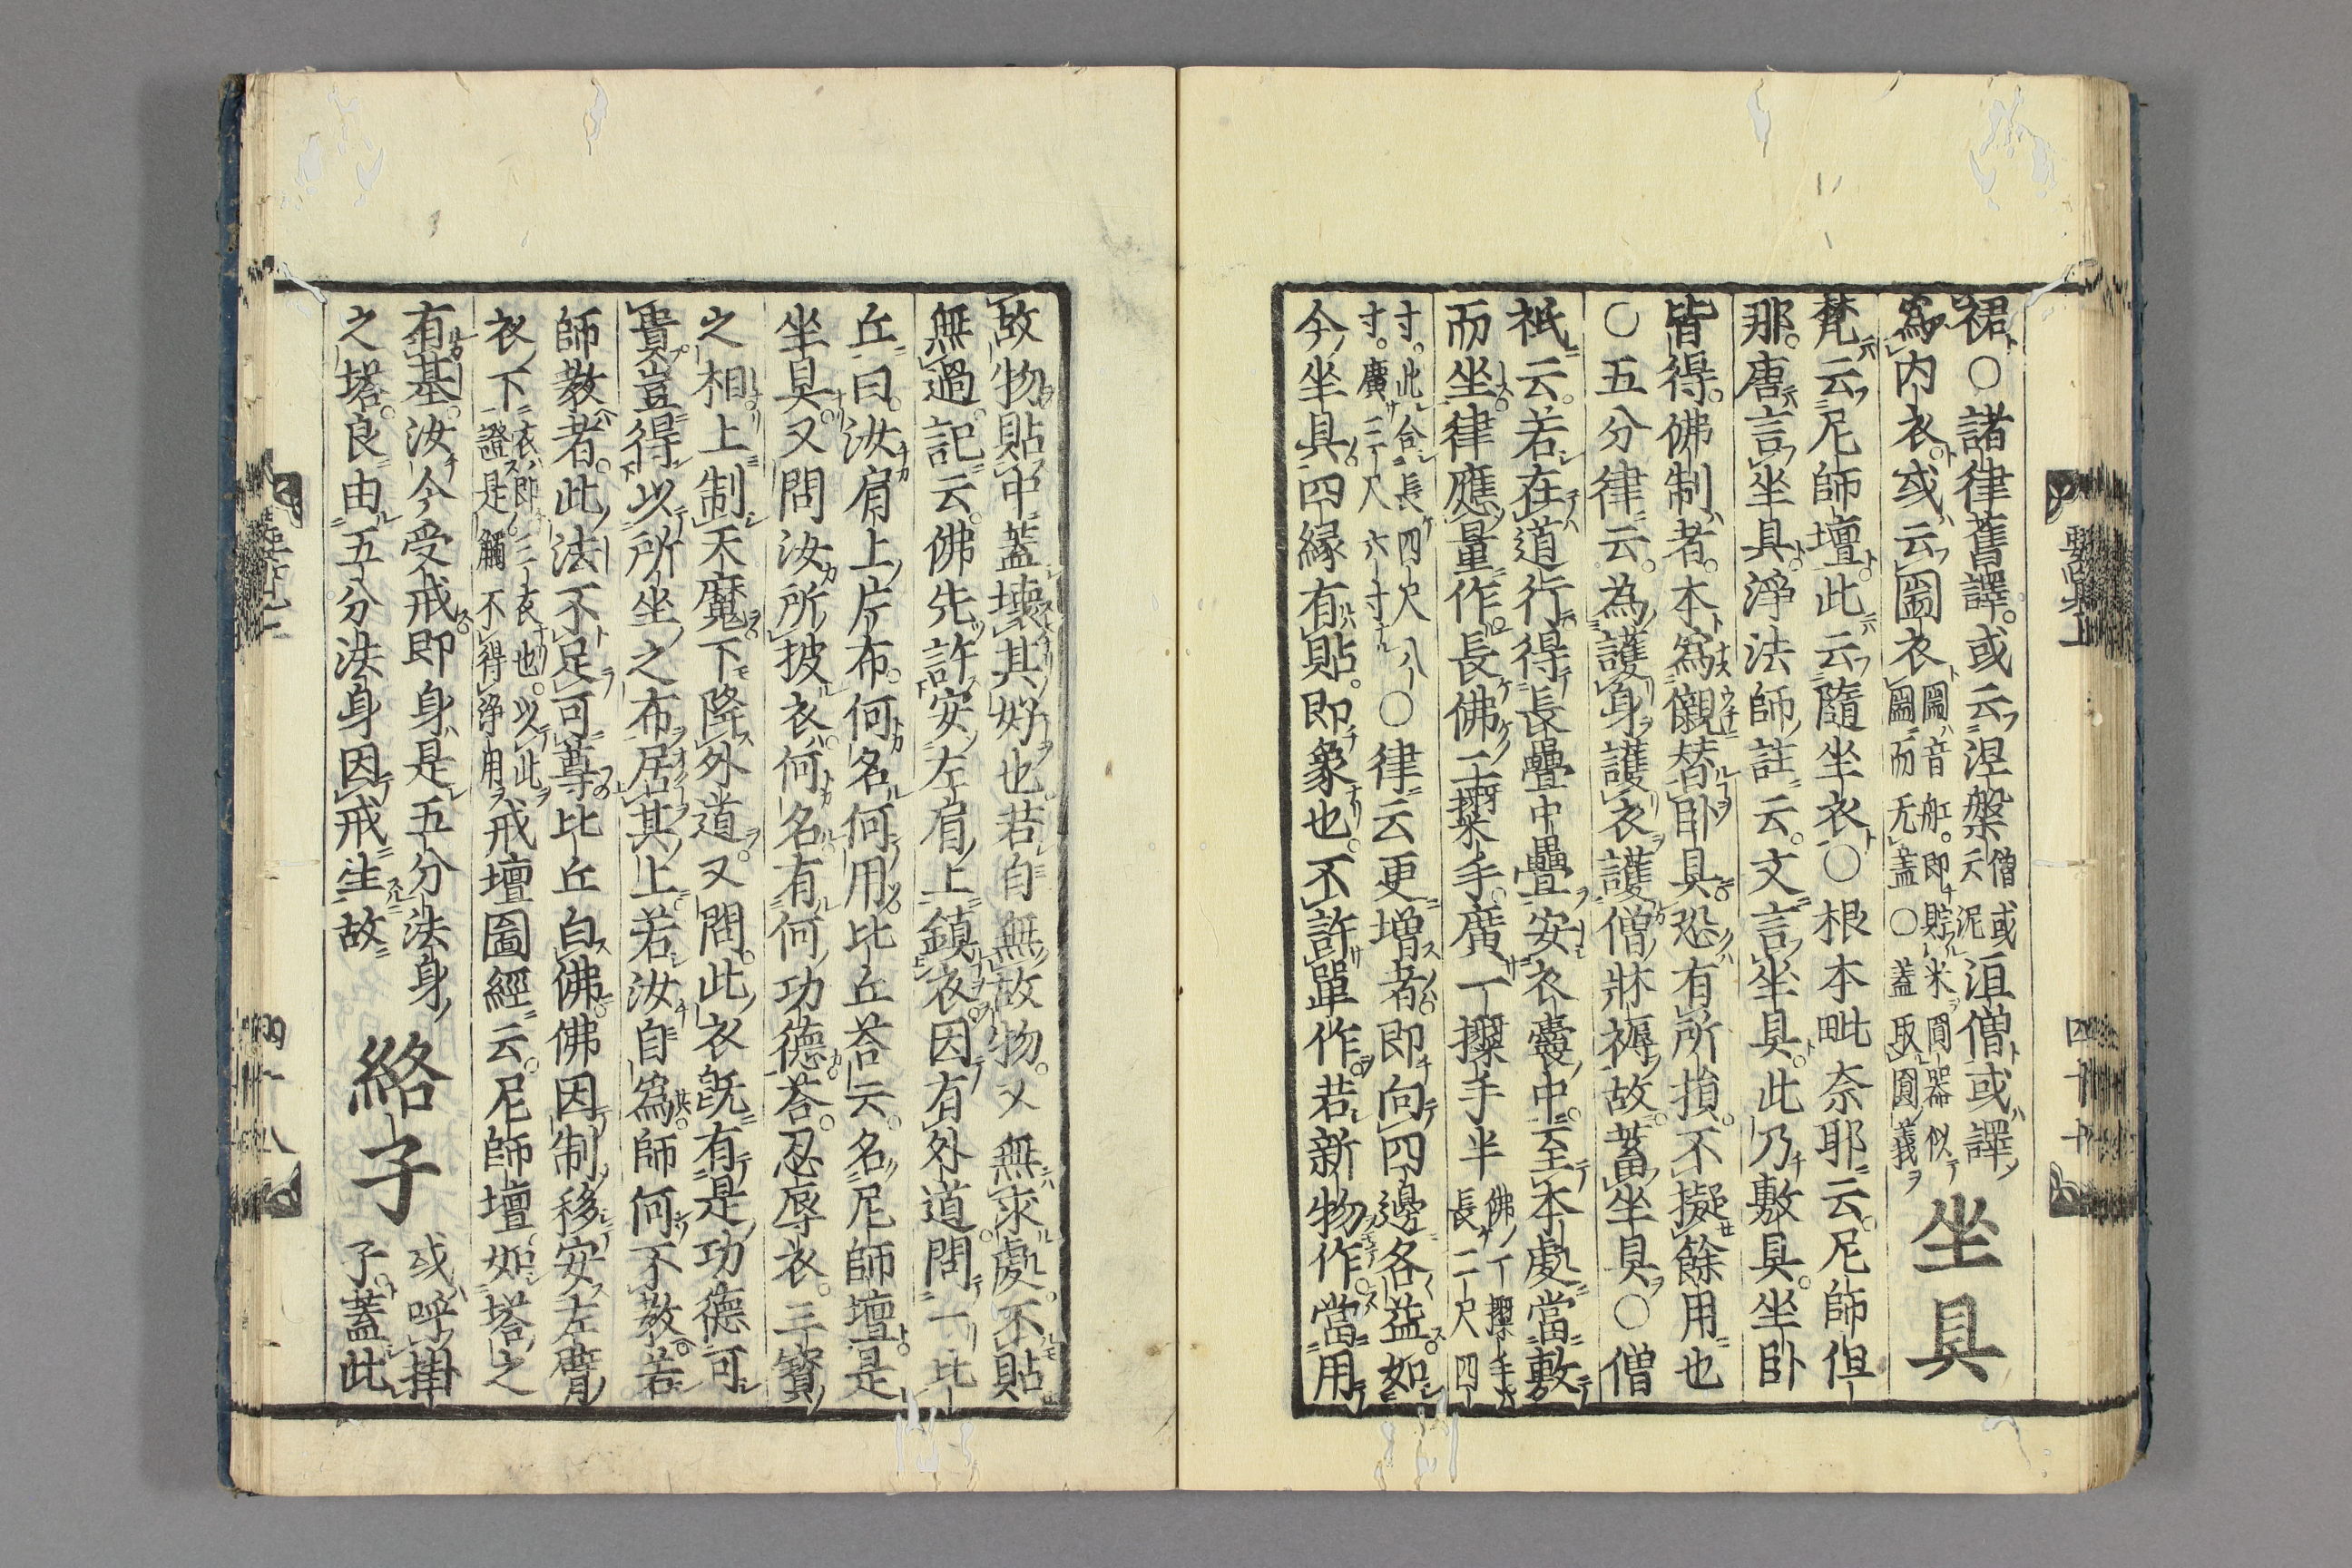 裙○諸律舊譯或云涅槃僧或云泥洹僧或譯
爲内衣或云圌衣圌音舡即貯米圓器似圌而无盖○蓋取圓義坐具
梵云尼師壇此云隨坐衣○根本毗奈耶云尼師但
那唐言坐具淨法師註云文言坐具此乃敷具坐卧
皆得佛制者本爲儭替卧具恐有所損不擬餘用也
○五分律云為護身護衣護僧牀褥故蓄坐具○僧
祇云若在道行得長疊中疊安衣囊中至本處當敷
而坐律應量作長佛二搩手廣一搩手半佛一搩手長二尺四
寸此合長四尺八寸廣三尺六寸○律云更增者即向四邊各益如
今坐具四縁有貼即象也不許單作若新物作當用
故物貼中蓋壊其好也若自無故物又無求處不貼
無過記云佛先許安左肩上鎮衣因有外道問一比
丘曰汝肩上片布何名何用比丘荅云名尼師壇是
坐具又問汝所披衣何名有何功德荅忍辱衣三寳
之相上制天魔下降外道又問此衣旣有是功德可
貴豈得以所坐之布居其上若汝自爲師何不敎若
師教者此法不足可尊比丘白佛佛因制移安左臂
衣下衣即三衣也以此證是觸不得淨用戒壇圖經云尼師壇如塔之
有基汝今受戒即身是五分法身
之塔良由五分法身因戒生故
絡子
或呼掛
子蓋此
四十八